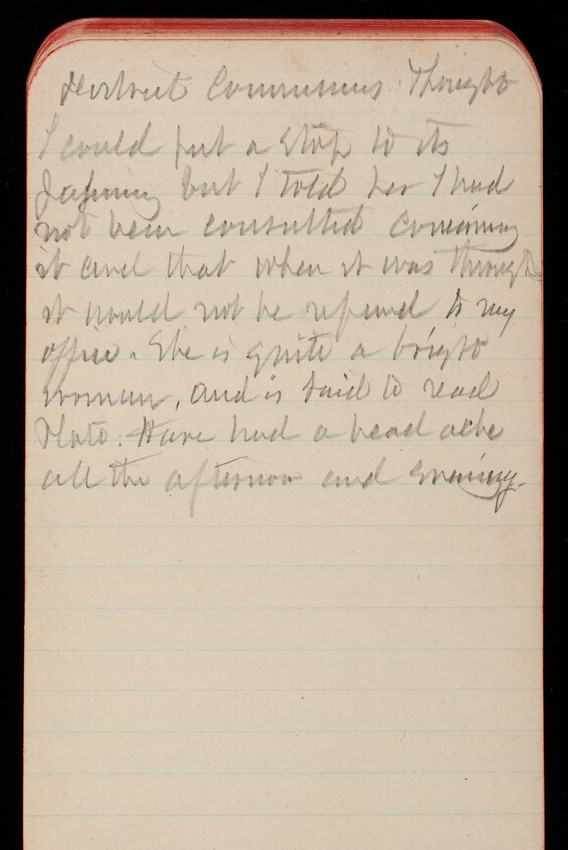 District Commissioners. Thought
I could put a stop to its
but I told her I had
not been consulted concerning
it and that when it was thought
it would not be referred to my
office. She is quite a bright
woman, and is said to read
Plato. Have had a head ache
all the afternoon and evening.